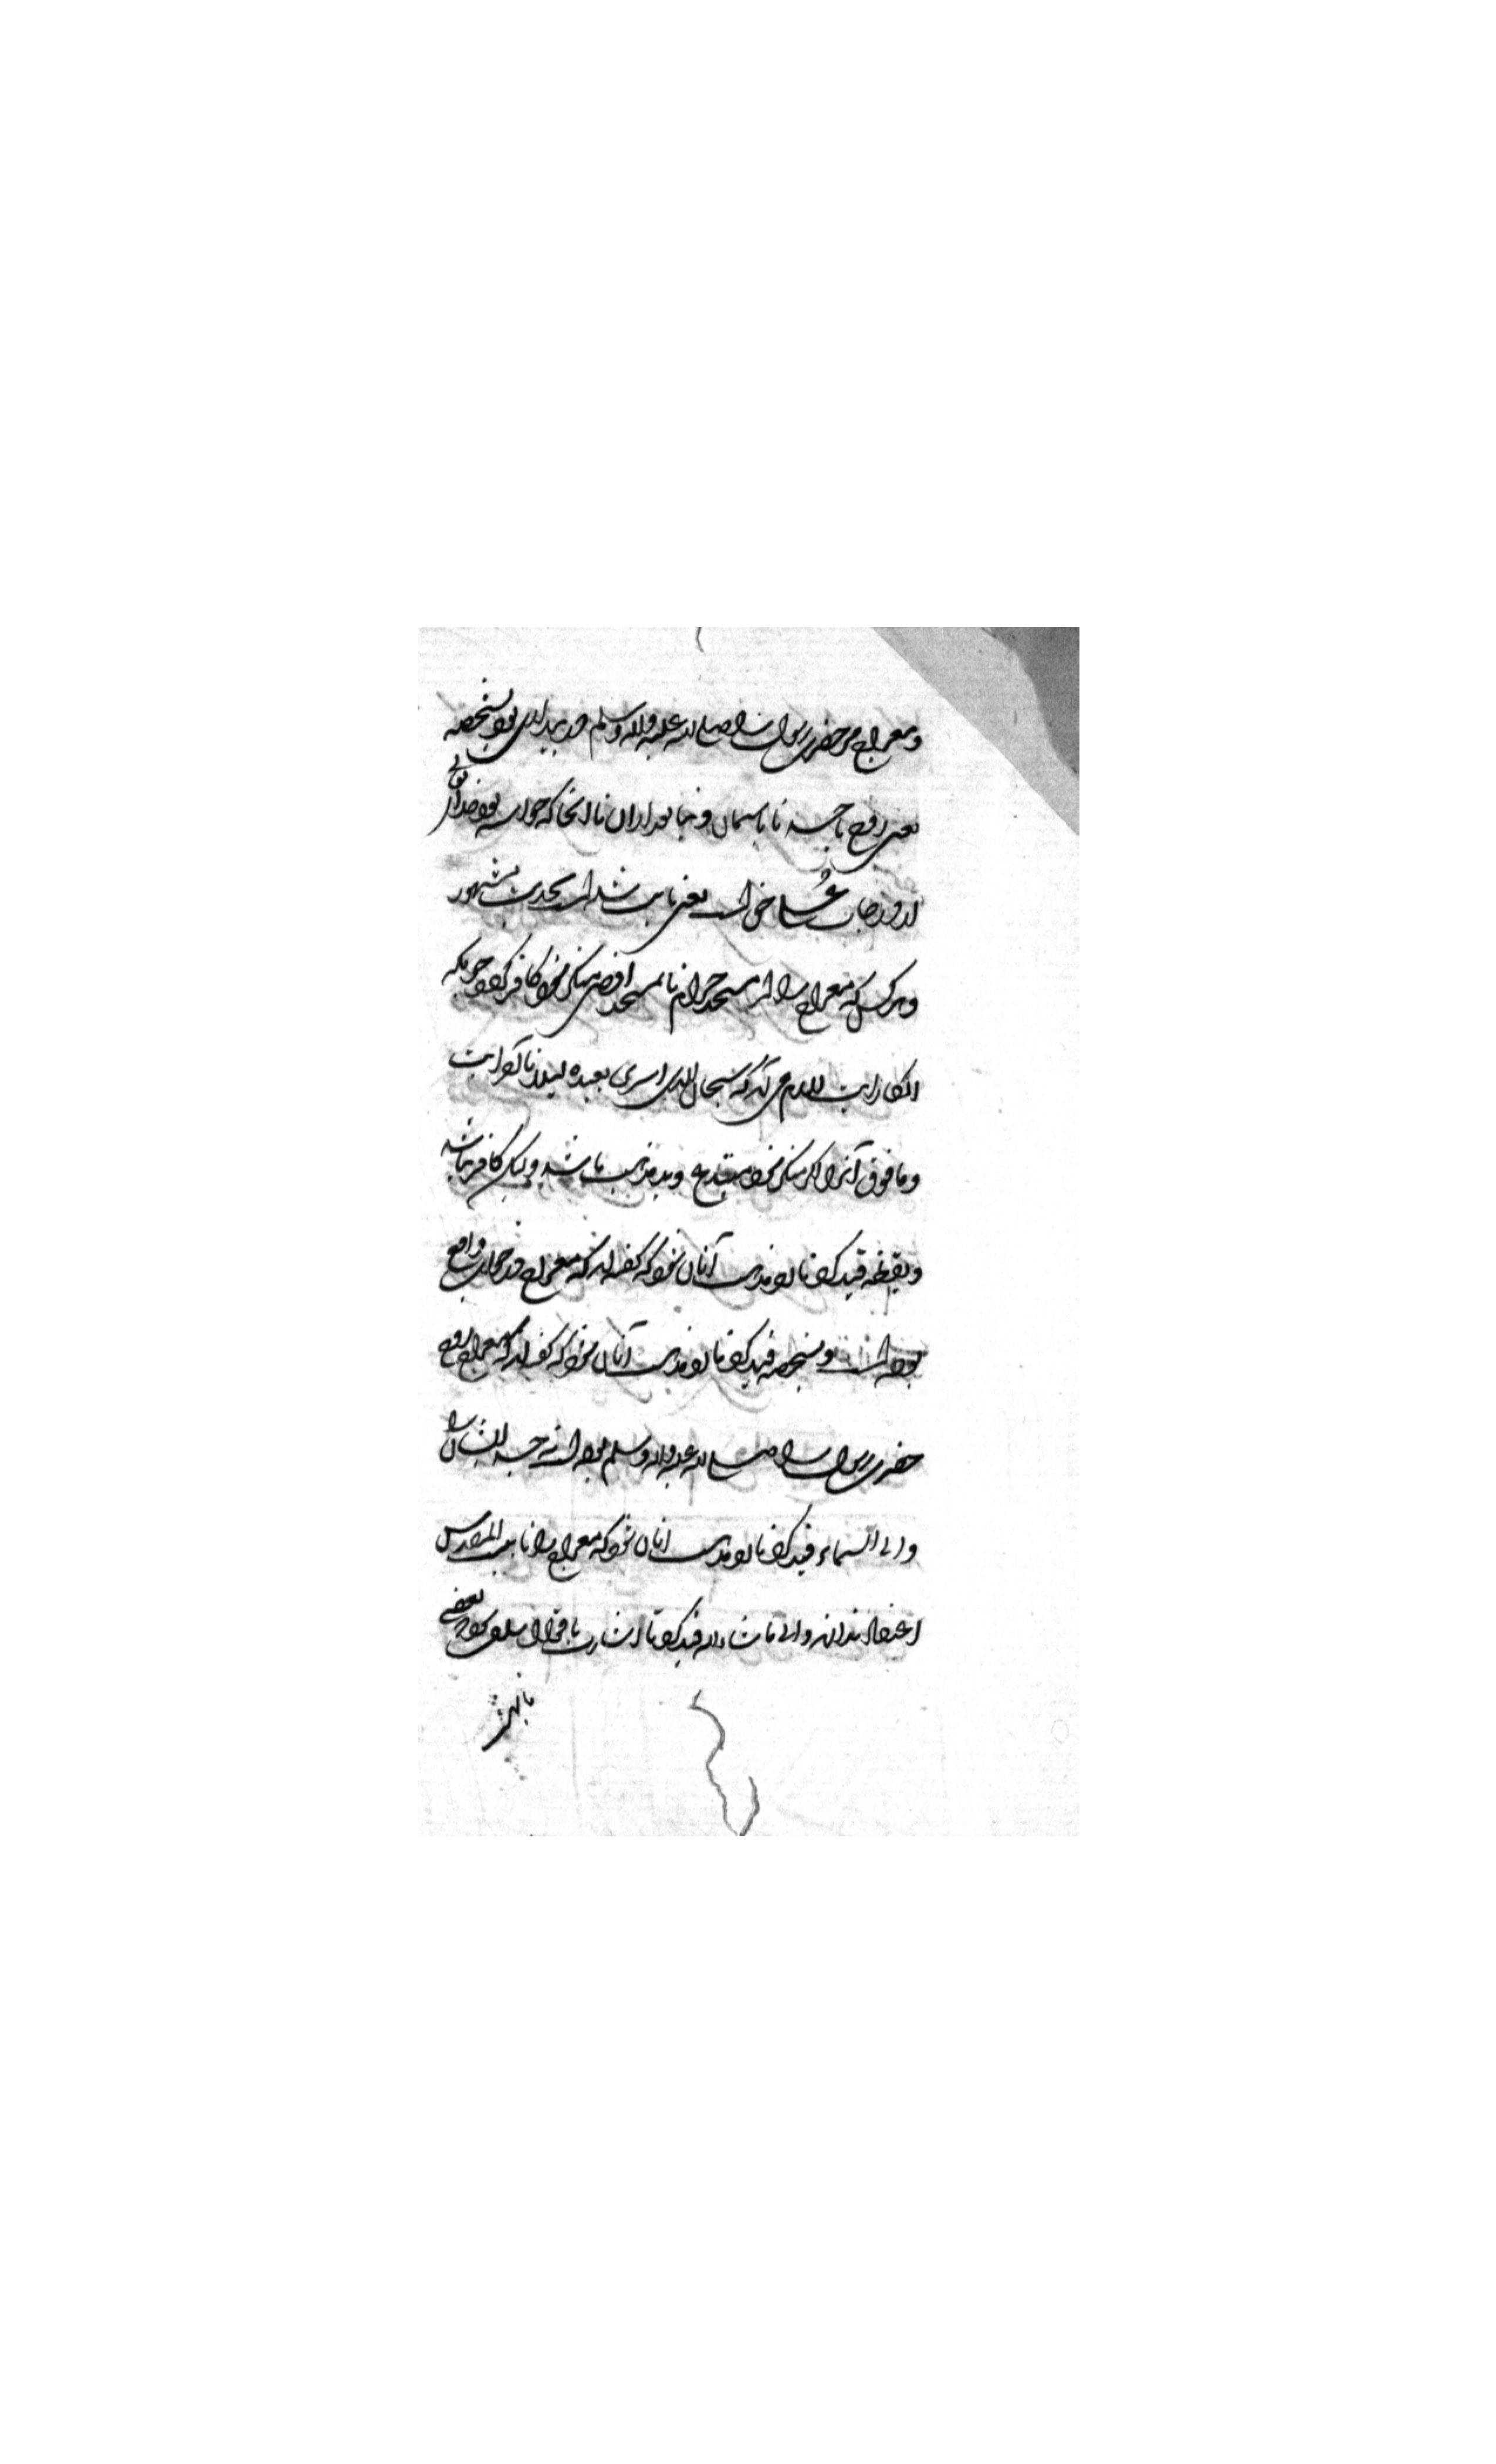 و معراج مر حضرت رسول را صلی الله علیه و اله وسلم در بیداری بود بشخصه
یعنی روح با جسد تا باسمان و بعد ازان تا انجا که خواسته بود خدای تعالی
از درجات علا حق است یعنی ثابت شده است بحدیث مشهور
و هر کس که معراج را از مسجد حرام تا مسجد اقصی منکر شود کافر گردد چرا که
انکار ایت لازم می آید که سبحان الذی اسری بعبده لیلا تا آخر ایت
و ما فوق آنرا اگر منکر شود مبتدع و بد مذهب باشد ولیکن کافر نباشد
و بیقظه قید کرد تا رد مذهب آنان شود که گفته اند که معراج در خواب واقع
بوده است و بشخصه قید کرد تا رد مذهب آنان شود که گفته اند که معراج روح
حضرت رسول را صلی الله علیه و اله وسلم بوده است نه جسد ایشان را
و الی السماء قید کرد تا رد مذهب انان شود که معراج را تا بیت المقدس
اعتقاد ندارند و الی ما شاء الله قید کرد تا اشارت باقوال سلف بود بعضی
تا بهشت